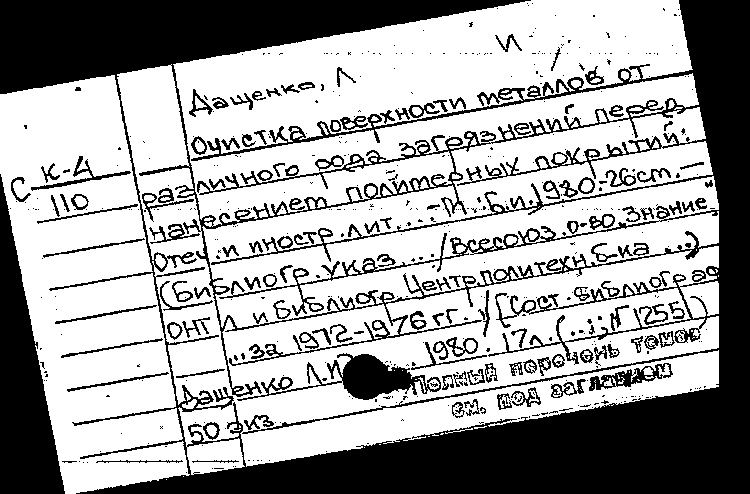 И
Дащенко, Л
Очистка поверхности металлов от
С К-4
110
различного рода загрязнений перед
нанесением полимерных покрытий:
Отеч. и иностр. лит. ... - М.: Б.и., 1980.-26см.-
(Библиогр. указ. ... / Всесоюз. о-во „Знание",
ОНТ Л и библиогр. Центр. политехн. б-ка ...)
...за 1972-1976 гг. / [Сост. библиограф
Дащенко Л.И] . 1980. 17л. (...; 1255])
50 экз.
Полный перечень томов
см. под заглавием